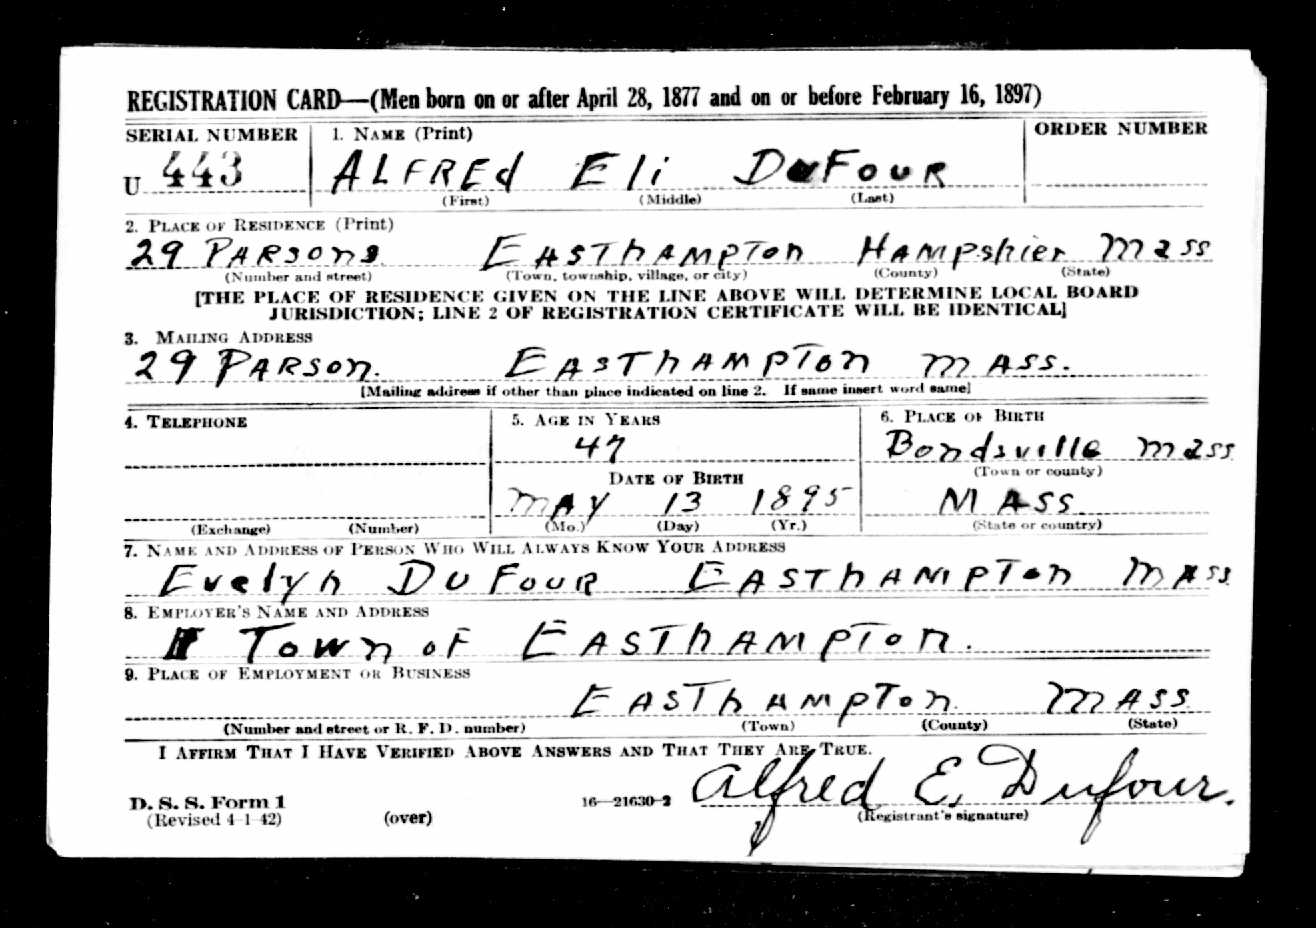 REGISTRATION CARD—(Men born on or after April 28, 1877 and on or before February 16, 1897)
SERIAL NUMBER 1. NAME (Print) ORDER NUMBER
U 443 ALFREd Eli DuFouR
(First) (Middle) (Last)
2. PLACE OF RESIDENCE (Print)
29 PARSons EASThAMPTon HAMPshier MASS
(Number and street) (Town, township, village, or city) (County) (State)
[THE PLACE OF RESIDENCE GIVEN ON THE LINE ABOVE WILL DETERMINE LOCAL BOARD
JURISDICTION; LINE 2 OF REGISTRATION CERTIFICATE WILL BE IDENTICAL]
3. MAILING ADDRESS
29 PARSon. EASThAMPTon MASS.
[Mailing address if other than place indicated on line 2. If same insert word same]
4. TELEPHONE 5. AGE IN YEARS 6. PLACE OF BIRTH
47 Bondsville Mass
(Town or county)
DATE OF BIRTH
MAY 13 1895 MASS
(Exchange) (Number) (Mo.) (Day) (Yr.) (State or country)
7. NAME AND ADDRESS OF PERSON WHO WILL ALWAYS KNOW YOUR ADDRESS
Evelyn DuFouR EASThAMPTon MASS
8. EMPLOYER'S NAME AND ADDRESS
Town oF EASThAMPTon.
9. PLACE OF EMPLOYMENT OR BUSINESS
EASThAMPTon MASS
(Number and street or R. F. D. number) (Town) (County) (State)
I AFFIRM THAT I HAVE VERIFIED ABOVE ANSWERS AND THAT THEY ARE TRUE.
D. S. S. Form 1 16—21630-2 Alfred E. Dufour.
(Revised 4-1-42) (over) (Registrant's signature)